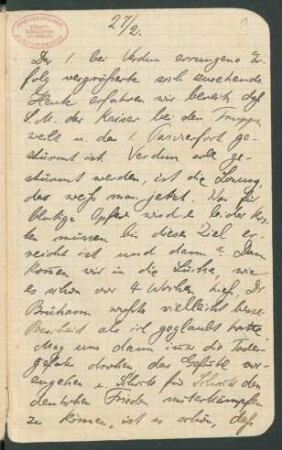 27/2.
1
Der 1. bei Verdun errungene Er-
folg vergrößerte sich zusehends.
Heute erfahren wir bereits daß
S.M. der Kaiser bei den Truppen
weilt u. das 1. Panzerfort ge-
stürmt ist. Verdun soll ge-
stürmt werden, ist die Losung,
das weiß man jetzt. Was für
blutige Opfer wird es leider ko-
sten müssen bis dieses Ziel er-
reicht ist und dann? Dann
kommen wir in die Lücke, wie
es schon vor 4 Wochen hieß. Dr
wußte vielleicht besser
Bescheid als ich geglaubt hatte.
Mag uns dann immer die Todes-
gefahr drohen das Gefühl vor-
zugehen u. Schritt für Schritt den
deutschen Frieden miterkämpfen
zu können, ist so schön, daß